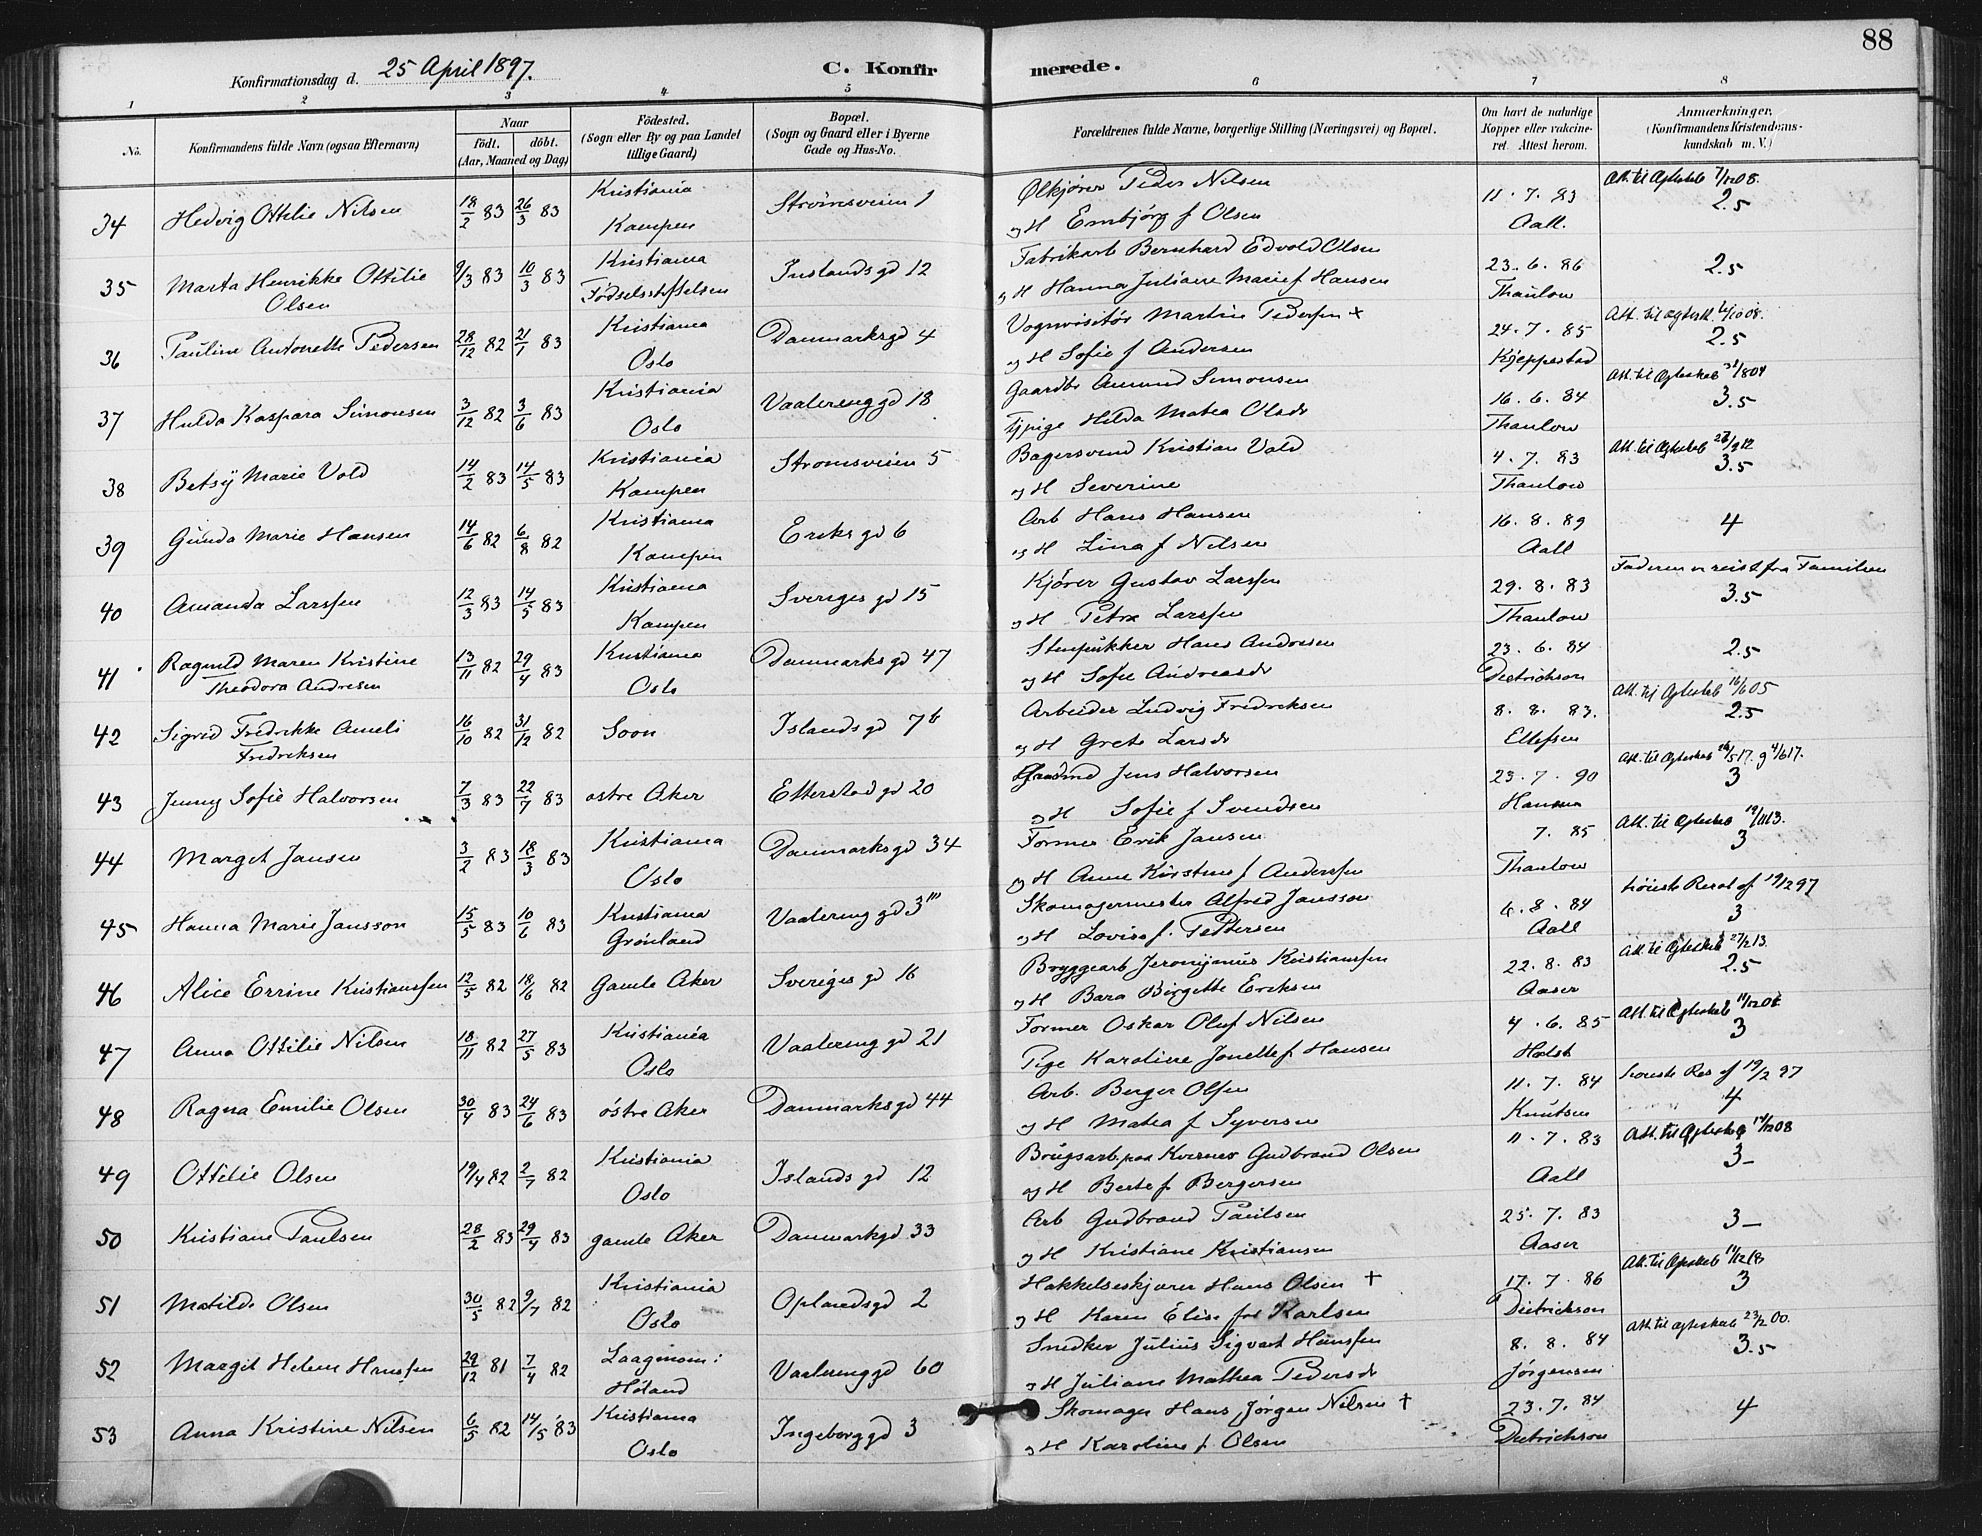 88
Konfirmationsdag d. 25 April 1897.
C. Konfirmerede.
1 2 3 4 5 6 7 8
No.
Konfirmandens fulde Navn (ogsaa Efternavn)
Naar
födt. döbt.
(Aar, Maaned og Dag)
Födested.
(Sogn eller By og paa Landet
tillige Gaard)
Bopæl.
(Sogn og Gaard eller i Byerne
Gade og Hus-No.
Forældrenes fulde Navne, borgerlige Stilling (Næringsvei) og Bopæl.
Om havt de naturlige
Kopper eller vakcine-
ret. Attest herom.
Anmærkninger,
(Konfirmandens Kristendoms-
kundskab m. V.)
34 Hedvig Ottilie Nilsen 18/2 83 26/3 83 Kristiania Kampen Strömsveien 1
Ølkjører Peder Nilsen 11.7.83 Att. til Ægteskab 7/12 08.
og H Embjørg f Olsen Aall. 2.5
35 Marta Henrikke Ottilie Olsen 9/3 83 10/3 83 Kristiania Fødselsstiftelsen Inslands gd 12
Fabrikarb Bernhard Edvold Olsen 23.6.86 2.5
og H Hanna Juliane Marie f Hansen Thaulow
36 Pauline Antonette Pedersen 28/12 82 21/1 83 Kristiania Oslo Danmarksgd 4
Vognvisitör Martin Pedersen + 24.7.85 Att. til ægtesk. 6/10 08.
og H Sofie f Andersen Kjeppestad 2.5
37 Hulda Kaspara Simonsen 3/12 82 3/6 83 Kristiania Oslo Vaalerenggd 18
Gaardbr Amund Simonsen 16.6.84 Att. til Ægteskab 31/8 04
Tjpige Hilda Matea Olsdr Thaulow 3.5
38 Betsÿ Marie Vold 14/2 83 14/5 83 Kristiania Kampen Strömsveien 5
Bagersvend Kristian Vold 4.7.83 Att. til Ægteskab 28/9 12
og H Severine Thaulow 3.5
39 Gunda Marie Hansen 14/6 82 6/8 82 Kristiania Kampen Eriks gd 6
Arb Hans Hansen 16.8.89 4
og H Lina f Nilsen Aall
40 Amanda Larssen 12/3 83 14/5 83 Kristiania Kampen Sveriges gd 15
Kjörer Gustav Larssen 29.8.83 Faderen er reist fra Familien
og H Petra Larssen Thaulow 3.5
41 Ragnild Maren Kristine Theodora Andresen 13/11 82 29/4 83 Kristiania Oslo Danmarks gd 47
Stenpukker Hans Andresen 23.6.84 2.5
og H Sofie Andreasdr Dietrichson
42 Sigrid Fredrikke Ameli Fredriksen 16/10 82 31/12 82 Soon Islands gd 7b
Arbeider Ludvig Fredriksen 8.8.83. Att. til Ægteskab 16/6 05
og H Grete Larsdr Ellefsen 2.5
43 Jenny Sofie Halvorsen 7/3 83 22/7 83 østre Aker Etterstad gd 20
Jens Halvorsen 23.7.90 Att. til Ægteskab 26/5 17. og 4/6 17.
og H Sofie f Svendsen Hansen 3
44 Margit Jansen 3/2 83 18/3 83 Kristiania Oslo Danmarksgd 34
Former Erik Jansen 7.85 Att. til Ægteskab 19/11 13.
og H Anne Kirstine f Anderssen Thaulow 3
45 Hanna Marie Jansson 15/5 83 10/6 83 Kristiania Grönland Vaalereng gd 3III
Skomagermester Alfred Jansson 6.8.84 Resol af 19/2 97
og H Lovise f. Pettersen Aall 3
46 Alice Errine Kristianssen 12/5 82 18/6 82 Gamle Aker Sveriges gd 16
Bryggearb Jeronijmus Kristianssen 22.8.83 Att. til Ægteskab 27/2 13.
og H Bara Birgette Eriksen Aaser 2.5
47 Anna Ottilie Nilsen 18/11 82 27/5 83 Kristiania Oslo Vaalereng gd 21
Former Oskar Oluf Nilsen 4.6.85 Att. til Ægteskab
Pige Karoline Jonette f Hansen Holst 3
48 Ragna Emilie Olsen 30/4 83 24/6 83 östre Aker Danmarksgd 44
Arb. Berger Olsen 11.7.84 Res af 19/2 97
og H Matea f Syversen Knutsen 4
49 Ottilie Olsen 19/4 82 2/7 82 Kristiania Oslo Islands gd 12
Brugsarb paa Kværner Gudbrand Olsen 11.7.83 Att. til Ægteskab 14/12 08
og H Berte f Bergersen Aall 3-
50 Kristiane Paulsen 28/2 83 29/4 83 gamle Aker Danmarkgd 33
Arb Gudbrand Paulsen 25.7.83 3-
og H Kristiane Kristiansen Aaser
51 Matilde Olsen 30/5 82 9/7 82 Kristiania Oslo Oplandsgd 2
Hakkelseskjærer Hans Olsen † 17.7.86 Att. til Ægteskab
og H Karen Elise föd Karlsen Dietrichson 3
52 Margit Helene Hanssen 29/12 81 7/4 82 Höland Vaalerenggd 60
Snedker Julius Sigvart Hanssen 8.8.84 Att. til ægteskab 23/2 00.
og H Juliane Mathea Pedersdr Jørgensen 3.5
53 Anna Kristine Nilsen 6/5 82 14/5 83 Kristiania Oslo Ingeborggd 3
Skomager Hans Jörgen Nilsen † 23.7.84 4
og H Karoline f. Olsen Dietrichson